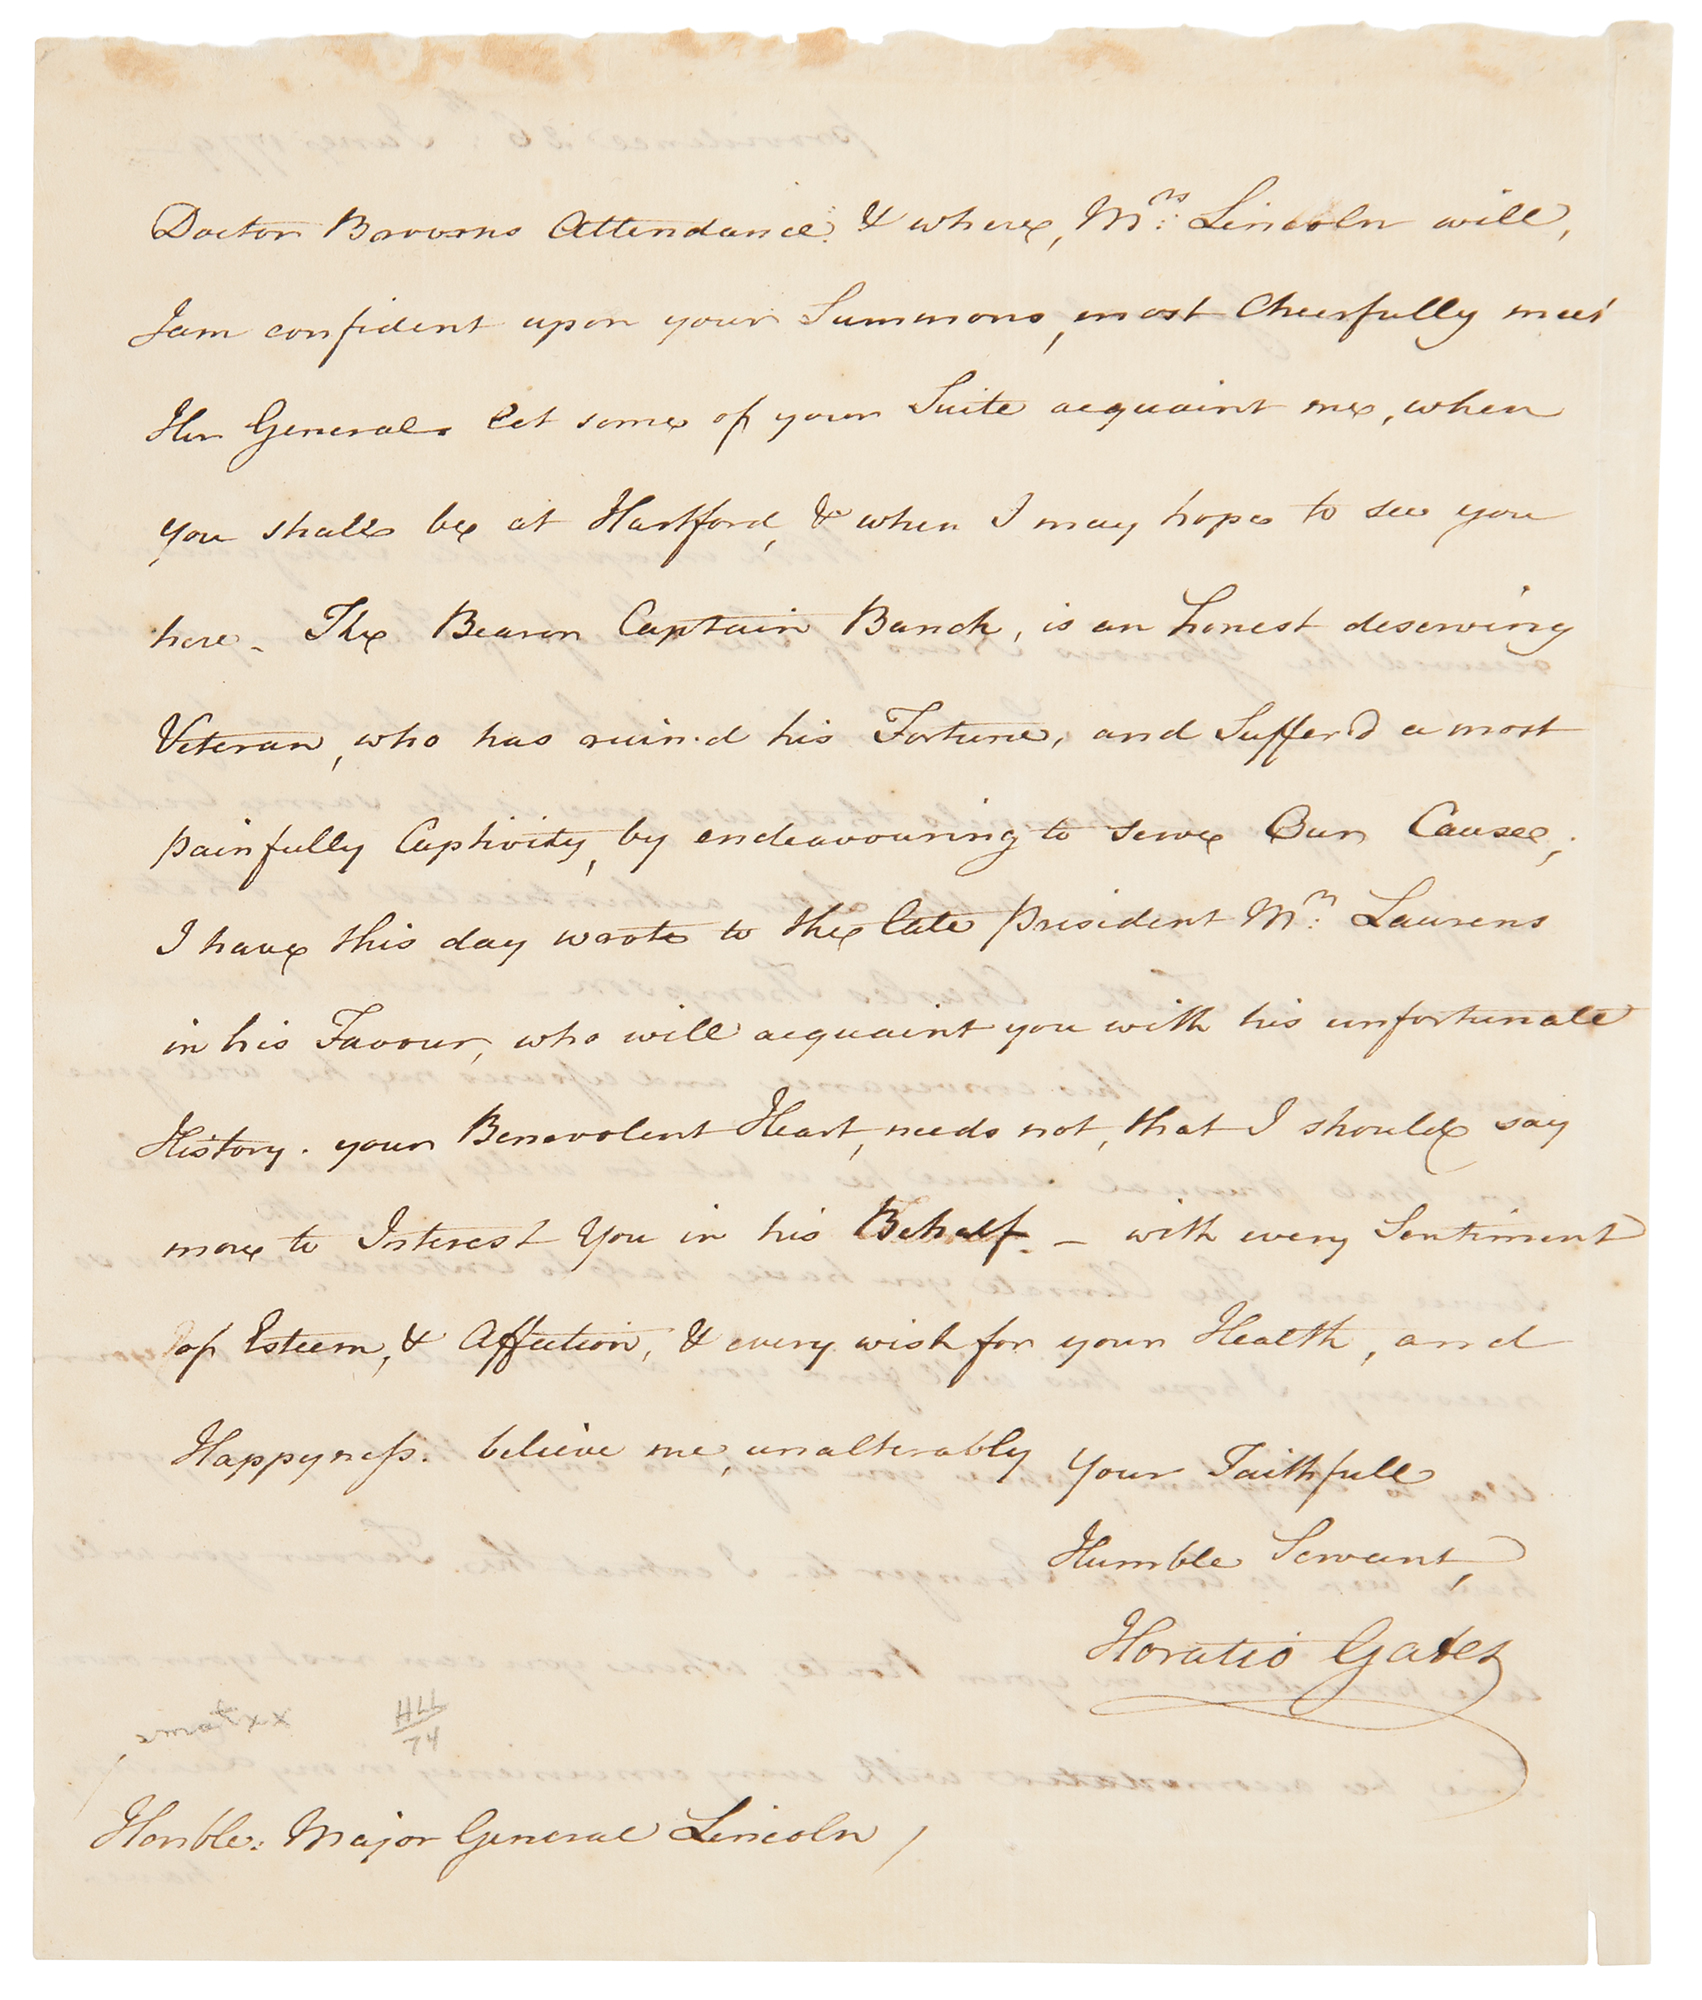 Doctor Browns Attendance. & where, Mrs: Lincoln will,
I am confident upon your Summons, most Cheerfully meet
Her General. Let some of your Suite acquaint me, when
you shall be at Hartford, & when I may hope to see you
here. The Bearer Captain Banck, is an honest deserving
Veteran, who has ruin'd his Fortune, and Suffer'd a most
painfully Captivity, by endeavouring to serve Our Cause;
I have this day wrote to the late President Mr: Laurens
in his Favour, who will acquaint you with his unfortunate
History. your Benevolent Heart, needs not, that I should say
more to Interest You in his Behalf. – with every Sentiment
of Esteem, & Affection, & every wish for your Health, and
Happyness. believe me, unalterably your Faithfull
Humble Servant,
Horatio Gates
HLL
74
Honble: Major General Lincoln /